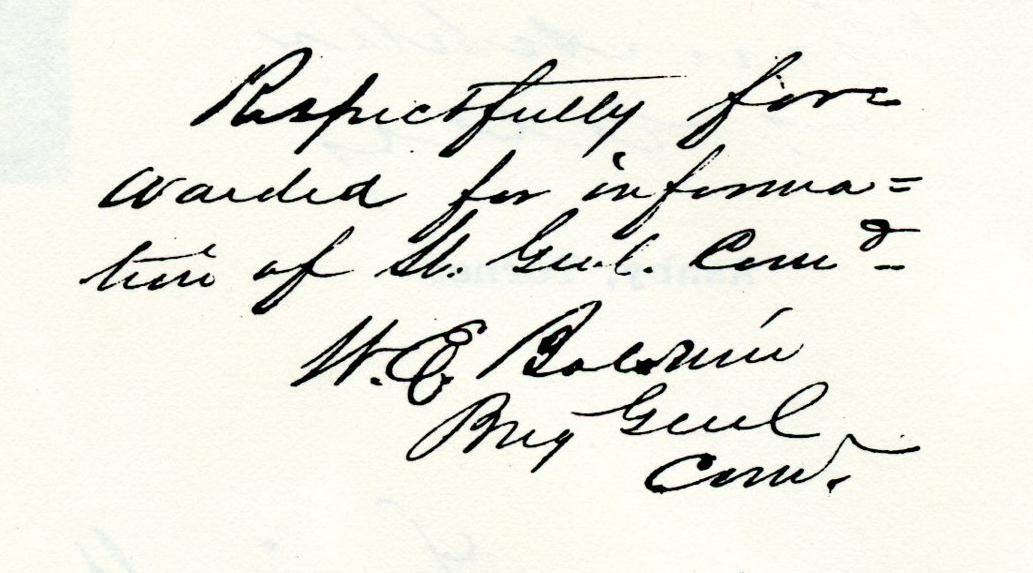 Respectfully for-
warded for informa=
tion of Lt. Genl. Comd=
W. E. Baldwin
Brig Genl
Comd.